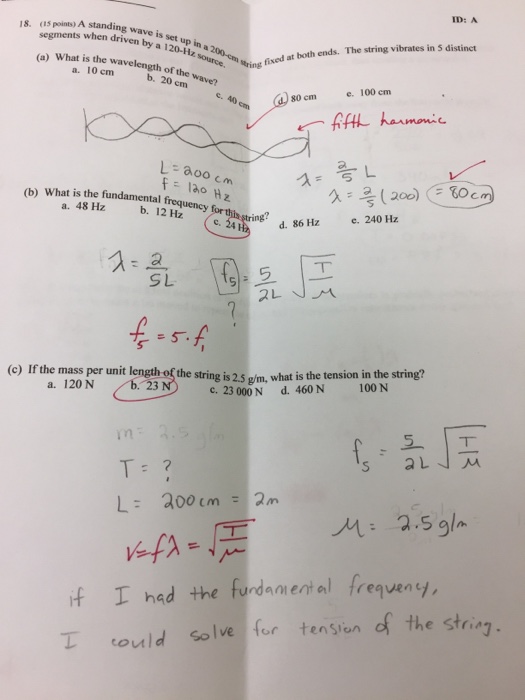 ID: A
18. (15 points) A standing wave is set up in a 200-cm string fixed at both ends. The string vibrates in 5 distinct
segments when driven by a 120-Hz source.
(a) What is the wavelength of the wave?
a. 10 cm b. 20 cm c. 40 cm d. 80 cm e. 100 cm
fifth harmonic
L = 200 cm
f = 120 Hz
λ = 2/5 L
λ = 2/5 (200) = 80 cm
(b) What is the fundamental frequency for this string?
a. 48 Hz b. 12 Hz c. 24 Hz d. 86 Hz e. 240 Hz
λ = 2/5L
f₅ = 5/2L √T/μ
?
f₅ = 5·f₁
(c) If the mass per unit length of the string is 2.5 g/m, what is the tension in the string?
a. 120 N b. 23 N c. 23 000 N d. 460 N 100 N
m = 2.5 g/m
T = ?
L = 200 cm = 2m
f₅ = 5/2L √T/μ
μ = 2.5 g/m
v=fλ = √T/μ
if I had the fundamental frequency,
I could solve for tension of the string.